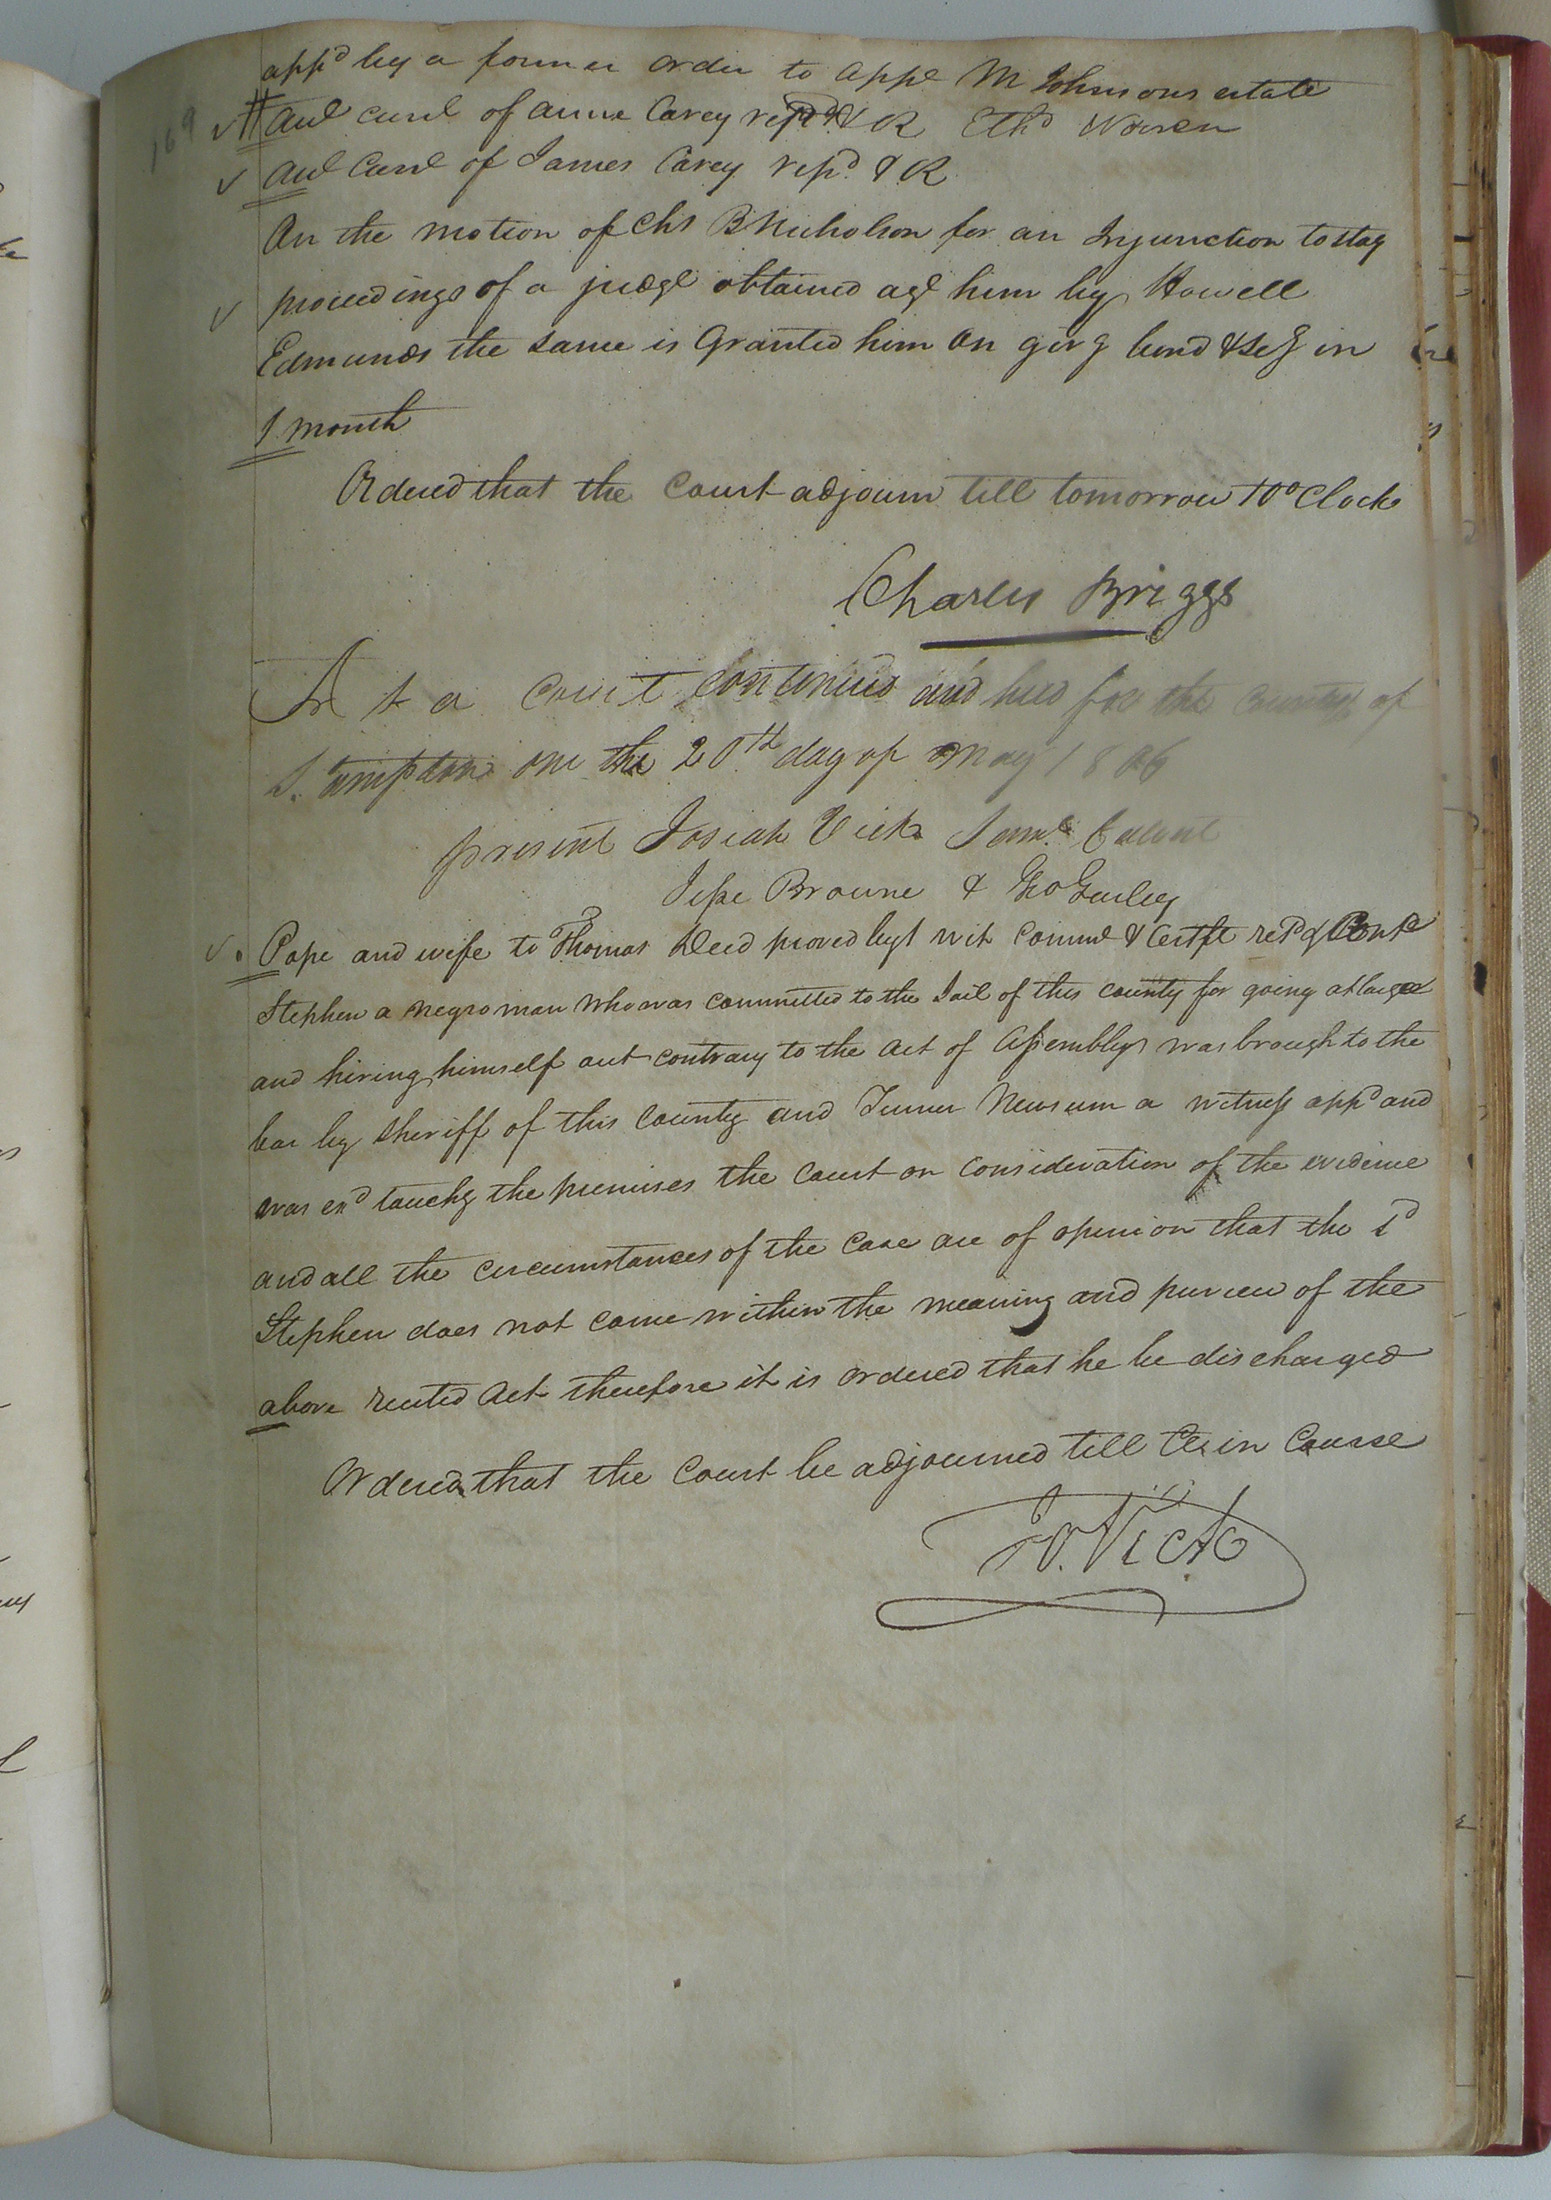 169
appd by a former order to appe M Johnsons estate
Aud Curl of anne Carey repd & R Ethd
Aud Curl of James Carey repd & R
On the motion of Chs B Nicholson for an Injunction to stay
proceedings of a judgt obtained agt him by Howell
Edmunds the same is Granted him on givg bond & Secy in
1 month
Ordered that the Court adjourn till tomorrow 10 oClock
Charles Briggs
At a Court Continued and held for the County of
S.ampton on the 20th day of May 1806
present Josiah Vick Saml Calvert
Jesse Browne & Geo Gurley
Pope and wife to Thomas Deed proved by 1 wit Comml & Certft retd &
Stephen a negro man who was committed to the Jail of this county for going at large
and hiring himself out contrary to the act of Assembly was brough to the
bar by Sheriff of this County and Turner Newsum a witness appd and
was exd touchg the premises the Court on Consideration of the evidence
and all the circumstances of the Case are of opinion that the sd
Stephen does not come within the meaning and purview of the
above recited Act therefore it is ordered that he be discharged
Ordered that the Court be adjourned till Cts in Course
Jo. Vick